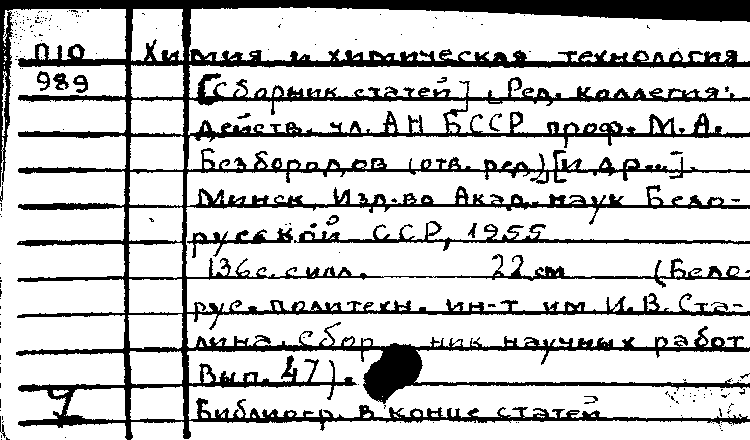 П10 Химия и химическая технология
989 [Сборник статей]. [Ред. коллегия:
действ. чл. АН БССР проф. М. А.
Безбородов (отв. ред.) [и др...].
Минск, Изд-во Акад. наук Бело-
русской ССР, 1955
136 с. с илл. 22 см (Бело-
рус. политехн. ин-т им. И. В. Ста-
лина. Сборник научных работ
Вып. 47).
Библиогр. в конце статей